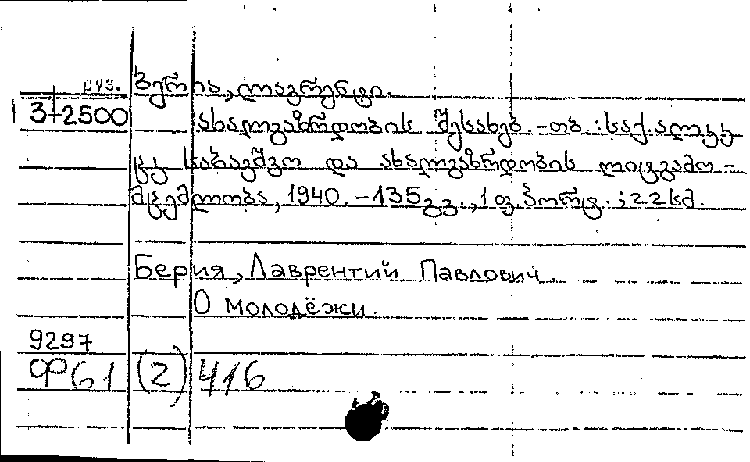 ბერია, ლავრენტი.
3-2500 ახალგაზრდობის შესახებ. -თბ.: საქ. ალკკ
ცკ საბავშვო და ახალგაზრდობის ლიტ. გამო-
მცემლობა, 1940. -135გვ., 1 ფ. პორტ. ; 22 სმ.
Берия, Лаврентий Павлович.
О молодёжи.
9297
Ф61 (2) 416